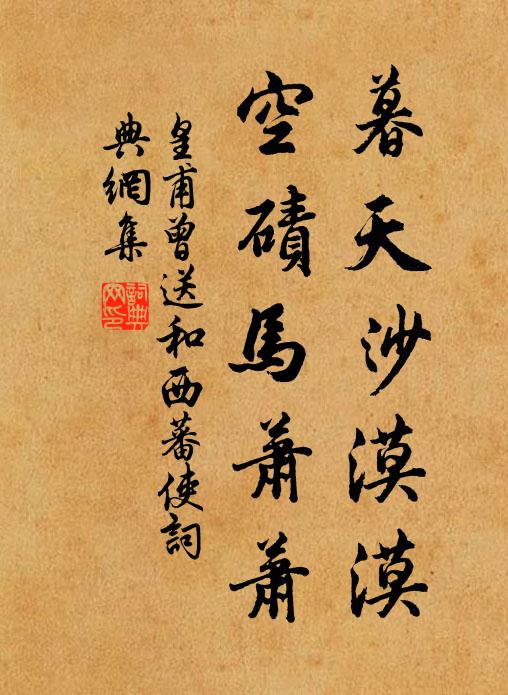 暮天沙漠漠
空磧馬蕭蕭
皇甫曾送和西蕃使詞
典網集
詞典
网印